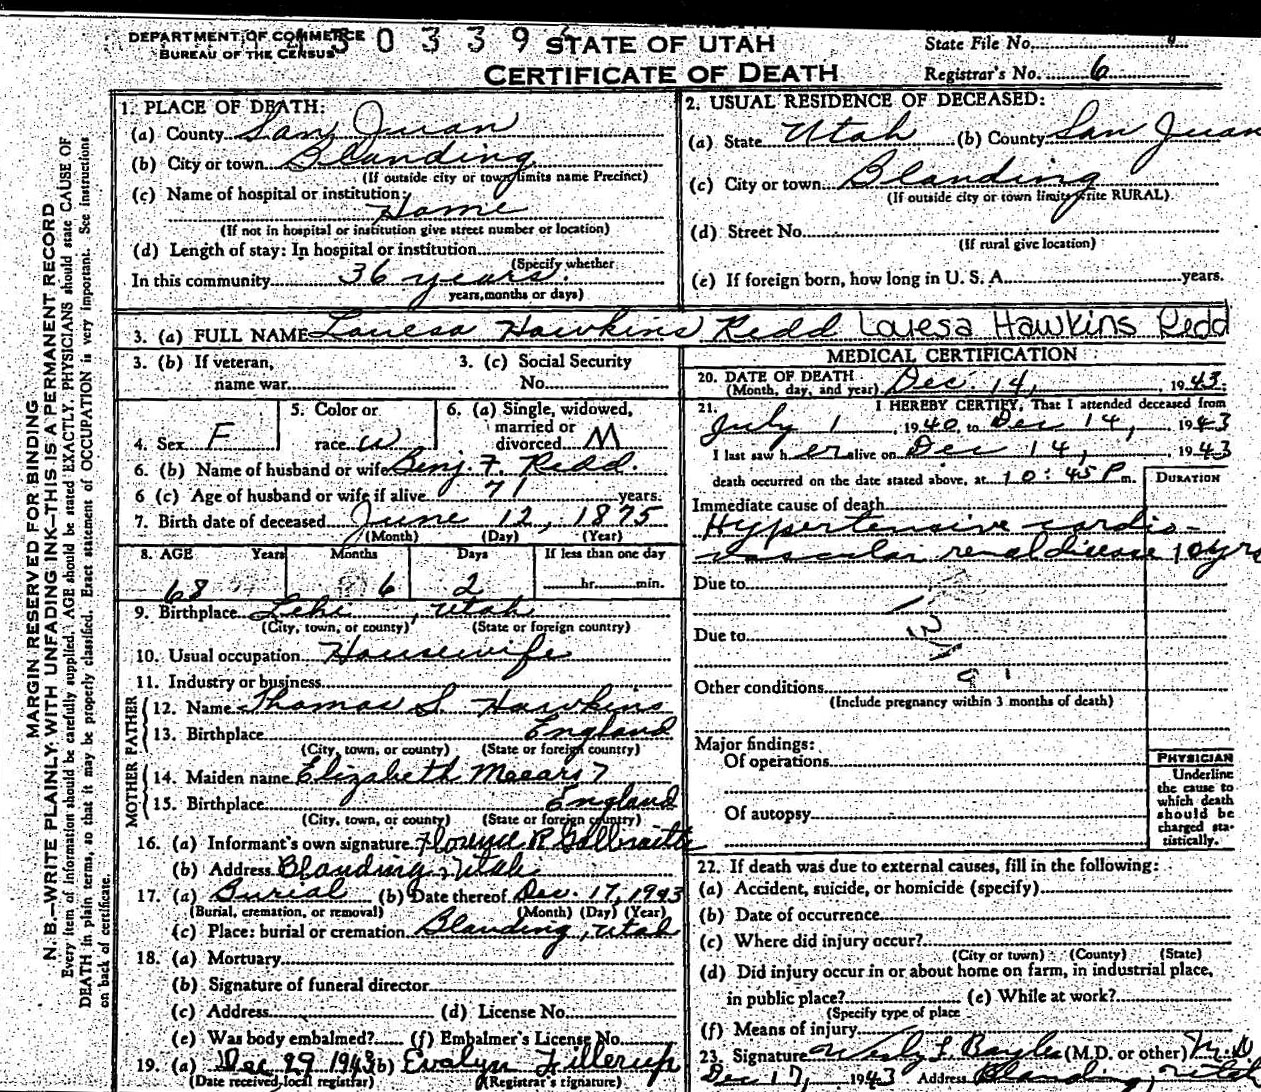 DEPARTMENT OF COMMERCE
BUREAU OF THE CENSUS
0 3 3 9
STATE OF UTAH
CERTIFICATE OF DEATH
State File No.
Registrar's No. 6
MARGIN RESERVED FOR BINDING
N. B.—WRITE PLAINLY WITH UNFADING INK—THIS IS A PERMANENT RECORD
Every item of information should be carefully supplied. AGE should be stated EXACTLY. PHYSICIANS should state CAUSE OF
DEATH in plain terms, so that it may be properly classified. Exact statement of OCCUPATION is very important. See Instructions
on back of certificate.
1. PLACE OF DEATH:
(a) County San Juan
(b) City or town Blanding
(If outside city or town limits name Precinct)
(c) Name of hospital or institution:
Home
(If not in hospital or institution give street number or location)
(d) Length of stay: In hospital or institution
(Specify whether
In this community 36 years.
years, months or days)
2. USUAL RESIDENCE OF DECEASED:
(a) State Utah (b) County San Juan
(c) City or town Blanding
(If outside city or town limits write RURAL)
(d) Street No.
(If rural give location)
(e) If foreign born, how long in U. S. A. years.
3. (a) FULL NAME Louesa Hawkins Redd Louesa Hawkins Redd
3. (b) If veteran,
name war
3. (c) Social Security
No.
4. Sex F
5. Color or
race W
6. (a) Single, widowed,
married or
divorced M
6. (b) Name of husband or wife Benj. F. Redd.
6 (c) Age of husband or wife if alive 71 years.
7. Birth date of deceased June 12, 1875
(Month) (Day) (Year)
8. AGE Years Months Days If less than one day
68 6 2 hr. min.
9. Birthplace Lehi, Utah
(City, town, or county) (State or foreign country)
10. Usual occupation Housewife
11. Industry or business
FATHER
12. Name Thomas S. Hawkins
13. Birthplace England
(City, town, or county) (State or foreign country)
MOTHER
14. Maiden name Elizabeth
15. Birthplace England
(City, town, or county) (State or foreign country)
16. (a) Informant's own signature Florence R Galbraith
(b) Address Blanding, Utah
17. (a) Burial (b) Date thereof Dec. 17, 1943
(Burial, cremation, or removal) (Month) (Day) (Year)
(c) Place: burial or cremation Blanding, Utah
18. (a) Mortuary
(b) Signature of funeral director
(c) Address (d) License No.
(e) Was body embalmed? (f) Embalmer's License No.
19. (a) Dec 29 1943 (b) Evalyn Fillerup
(Date received local registrar) (Registrar's signature)
MEDICAL CERTIFICATION
20. DATE OF DEATH
(Month, day, and year) Dec. 14, 1943.
21. I HEREBY CERTIFY, That I attended deceased from
July 1, 1940, to Dec 14, 1943
I last saw her alive on Dec 14, 1943
death occurred on the date stated above, at 10:45 P m.
DURATION
Immediate cause of death
Hypertensive cardio-
vascular renal disease 10 yrs
Due to
Due to
Other conditions
(Include pregnancy within 3 months of death)
Major findings:
Of operations
Of autopsy
PHYSICIAN
Underline
the cause to
which death
should be
charged sta-
tistically.
22. If death was due to external causes, fill in the following:
(a) Accident, suicide, or homicide (specify)
(b) Date of occurrence
(c) Where did injury occur?
(City or town) (County) (State)
(d) Did injury occur in or about home on farm, in industrial place,
in public place? (e) While at work?
(Specify type of place
(f) Means of injury
23. Signature Wesly L Bayles (M.D. or other) M.D.
Dec 17, 1943 Address Blanding, Utah